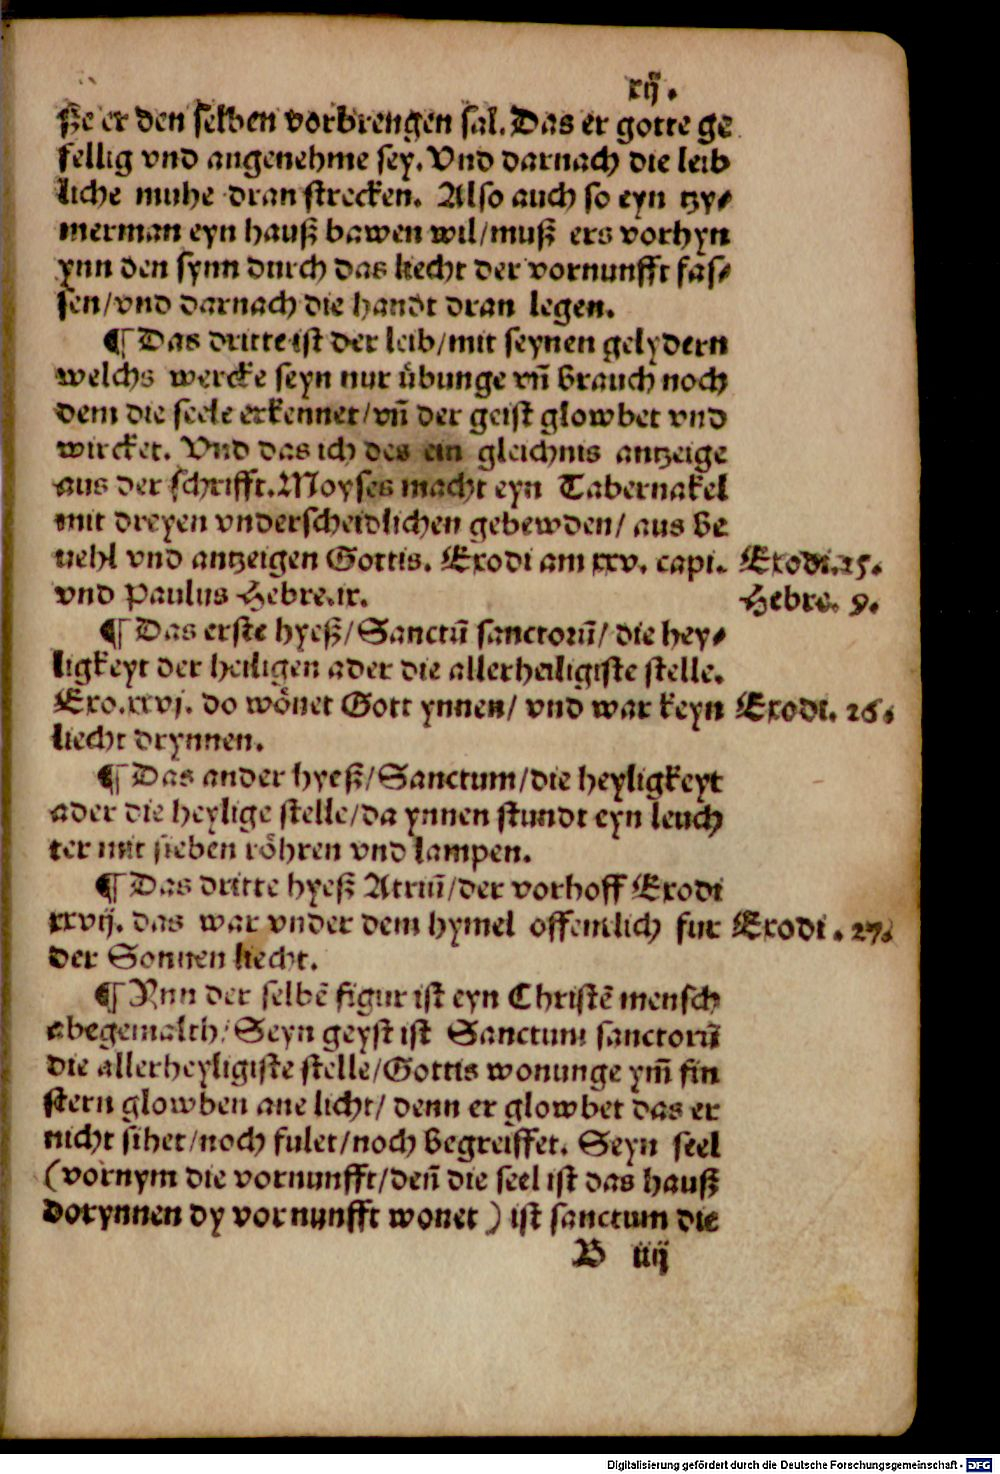 xij.
sße er den selben vorbrengen sal. Das er gotte ge
fellig vnd angenehme sey. Vnd darnach die leib
liche muhe dran strecken. Also auch so eyn tzy⸗
merman eyn hauß bawen wil/muß ers vorhyn
ynn den synn durch das liecht der vornunfft fas⸗
sen/vnd darnach die handt dran legen.
¶ Das dritte ist der leib/mit seynen gelydern
welchs wercke seyn nur ůbunge vn̄ brauch noch
dem die seele erkennet/vn̄ der geist glowbet vnd
wircket. Vnd das ich des ein gleichnis antzeige
aus der schrifft. Moyses macht eyn Tabernakel
mit dreyen vnderscheidlichen gebewden/ aus be
uehl vnd antzeigen Gottis. Exodi am xxv. capi. Exodi.25.
vnd Paulus Hebre.ix. Hebre. 9.
¶ Das erste hyeß/Sanctū sanctorū/ die hey⸗
ligkeyt der heiligen ader die allerheiligiste stelle.
Exo.xxvj. do wőnet Gott ynnen/ vnd war keyn Exodi. 26.
liecht drynnen.
¶ Das ander hyeß/Sanctum/die heyligkeyt
ader die heylige stelle/da ynnen stundt eyn leuch
ter mit sieben rőhren vnd lampen.
¶ Das dritte hyeß Atriū/der vorhoff Exodi
xxvij. das war vnder dem hymel offentlich fur Exodi. 27.
der Sonnen liecht.
¶ Ynn der selbē figur ist eyn Christē mensch
abegemalth/ Seyn geyst ist Sanctum sanctorū
die allerheyligiste stelle/Gottis wonunge ym̄ fin
stern glowben ane licht/ denn er glowbet das er
nicht sihet/noch fulet/noch begreiffet. Seyn seel
(vornym die vornunfft/den̄ die seel ist das hauß
dorynnen dy vornunfft wonet) ist sanctum die
B iiij
Digitalisierung gefördert durch die Deutsche Forschungsgemeinschaft - DFG